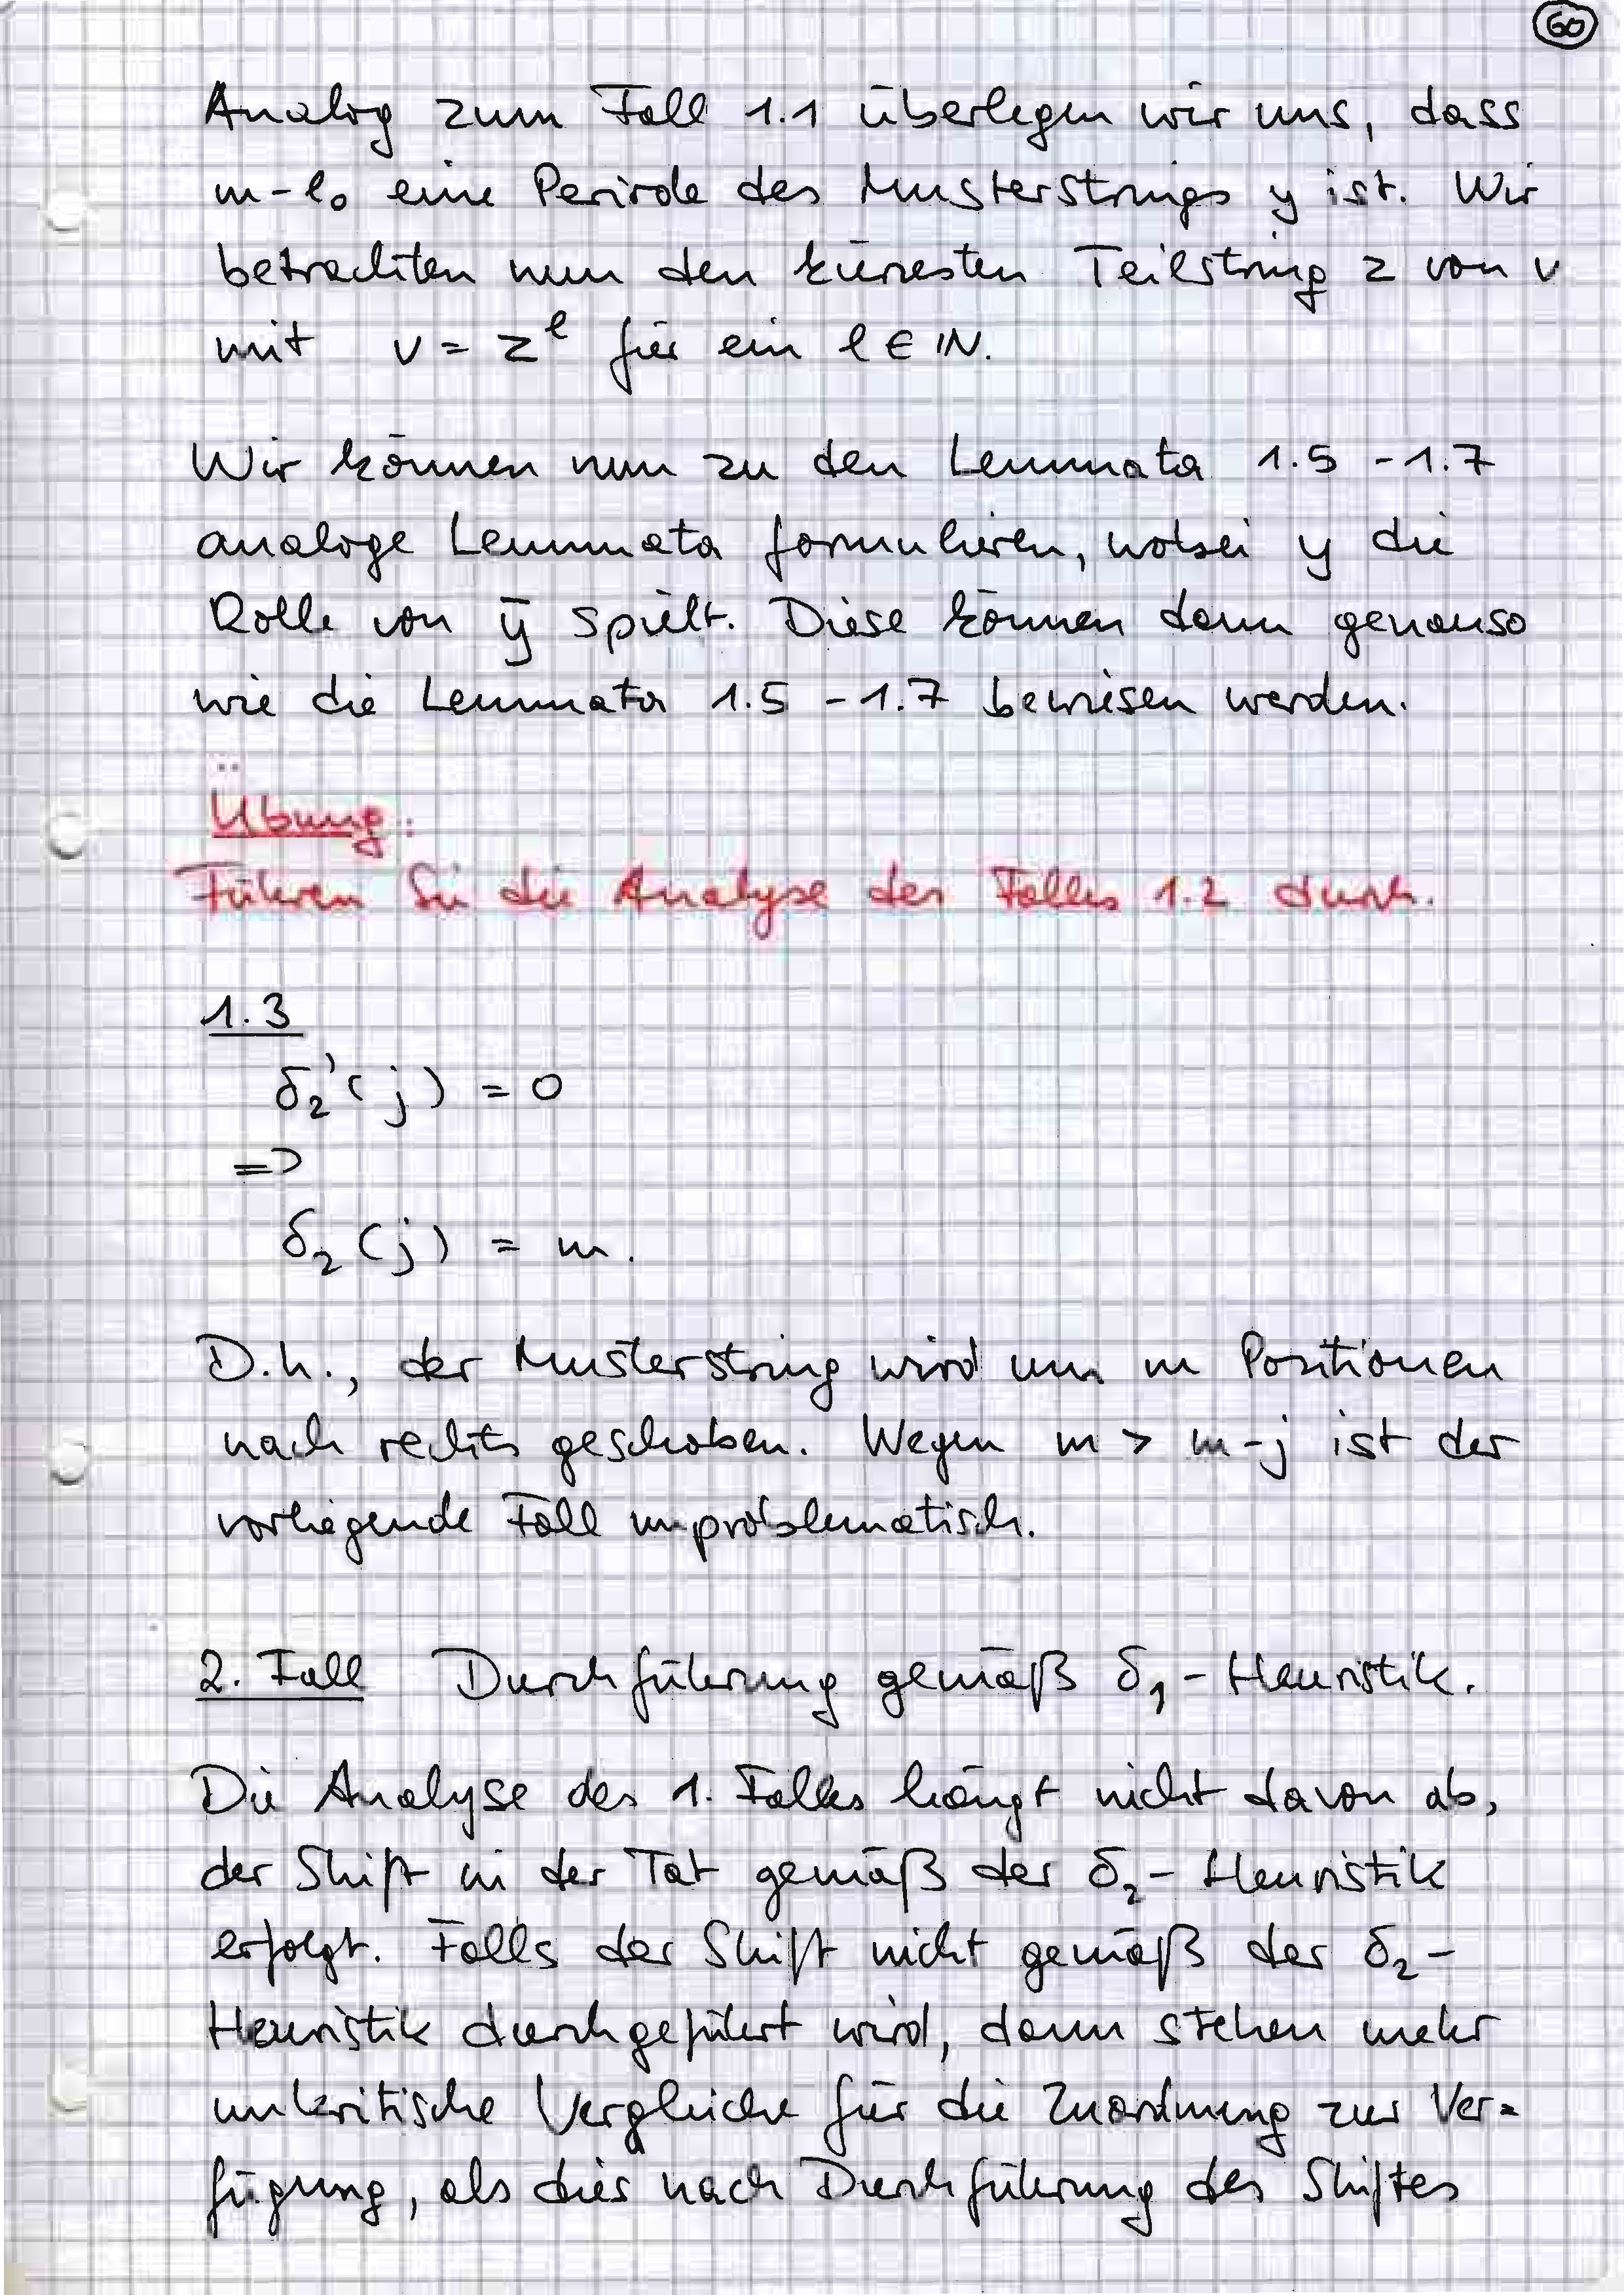 60
Analog zum Fall 1.1 überlegen wir uns, dass
m-l₀ eine Periode des Musterstrings y ist. Wir
betrachten nun den kürzesten Teilstring z von v
mit v = zˡ für ein l ∈ ℕ.
Wir können nun zu den Lemmata 1.5 - 1.7
analoge Lemmata formulieren, wobei y die
Rolle von ȳ spielt. Diese können dann genauso
wie die Lemmata 1.5 - 1.7 bewiesen werden.
Übung:
Führen Sie die Analyse des Falles 1.2 durch.
1.3
δ₂'(j) = 0
=>
δ₂(j) = m.
D.h., der Musterstring wird um m Positionen
nach rechts geschoben. Wegen m > m-j ist der
vorliegende Fall unproblematisch.
2. Fall Durchführung gemäß δ₁-Heuristik.
Die Analyse des 1. Falles hängt nicht davon ab,
der Shift in der Tat gemäß der δ₂-Heuristik
erfolgt. Falls der Shift nicht gemäß der δ₂-
Heuristik durchgeführt wird, dann stehen mehr
unkritische Vergleiche für die Zuordnung zur Ver-
fügung, als dies nach Durchführung des Shiftes